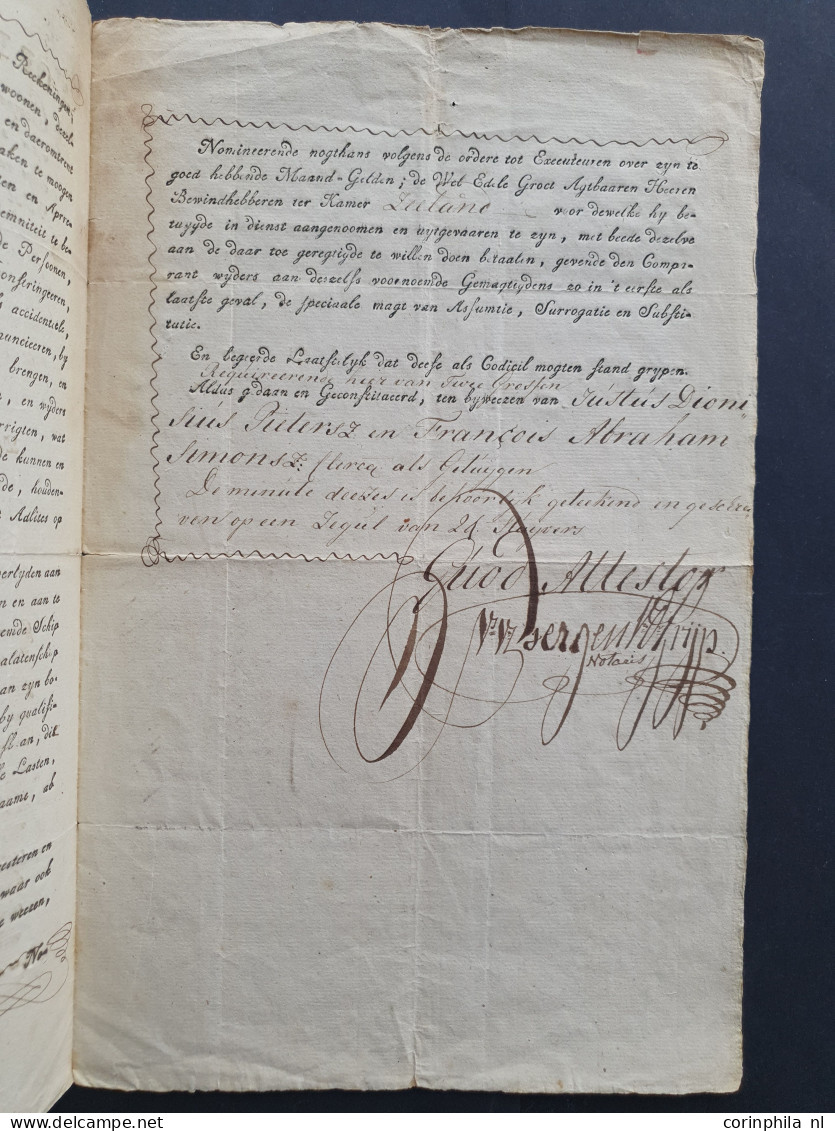 Reekeningen,
woonen, dezel-
en daeromtrent
aken te moogen
ten en Apree-
emniteit te be-
de Persoonen,
onstringeeren,
accidenteele,
nuncieeren, by
brengen, en
, en wyders
rrigten, wat
de kunnen en
de, houden-
t Adlites op
verlyden aan
n en aan te
emde Schip
alatenschap
an zyn bo-
by qualifi-
slaan, dit
le Lasten,
aame, ab
ecuteren en
waar ook
te weezen,
No-
Nomineerende nogthans volgens de ordere tot Executeuren over zyn te
goed hebbende Maand-Gelden; de Wel-Edele Groot Agtbaaren Heeren
Bewindhebberen ter Kamer Zeeland voor dewelke hy be-
tuygde in dienst aangenoomen en uytgevaaren te zyn, met beede dezelve
aan de daar toe geregtigde te willen doen betaalen, gevende den Compa-
rant wyders aan deszelfs voornoemde Gemagtigdens zo in 't eerste als
laatste geval, de speciaale magt van Assumtie, Surrogatie en Substi-
tutie.
En begeerde Laatstelyk dat deese als Codicil mogten stand grypen.
Requireerende hier van Twee Grossen
Aldus gedaan en Geconstitueerd, ten byweezen van Justus Dioni-
sius Pietersz en François Abraham
Simonsz: Clercq als Getuygen
De minute deezes is behoorlyk getekend en geschree
ven op een Zegul van 24 Stuyvers
Quod Attestor
Notaris
corinphila nl